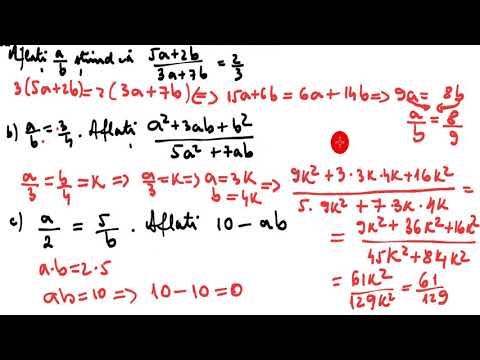 Aflati a/b stiind că (5a+2b)/(3a+7b) = 2/3
3(5a+2b)=2(3a+7b) <=> 15a+6b = 6a+14b => 9a = 8b
a/b = 8/9
b) a/b = 3/4. Aflati (a²+3ab+b²)/(5a²+7ab)
a/3 = b/4 = K => a/3 = K => a = 3K
b = 4K
(9K²+3·3K·4K+16K²)/(5·9K²+7·3K·4K) =
= (9K²+36K²+16K²)/(45K²+84K²)
= 61K²/129K² = 61/129
c) a/2 = 5/b. Aflati 10-ab
a·b=2·5
ab=10 => 10-10=0